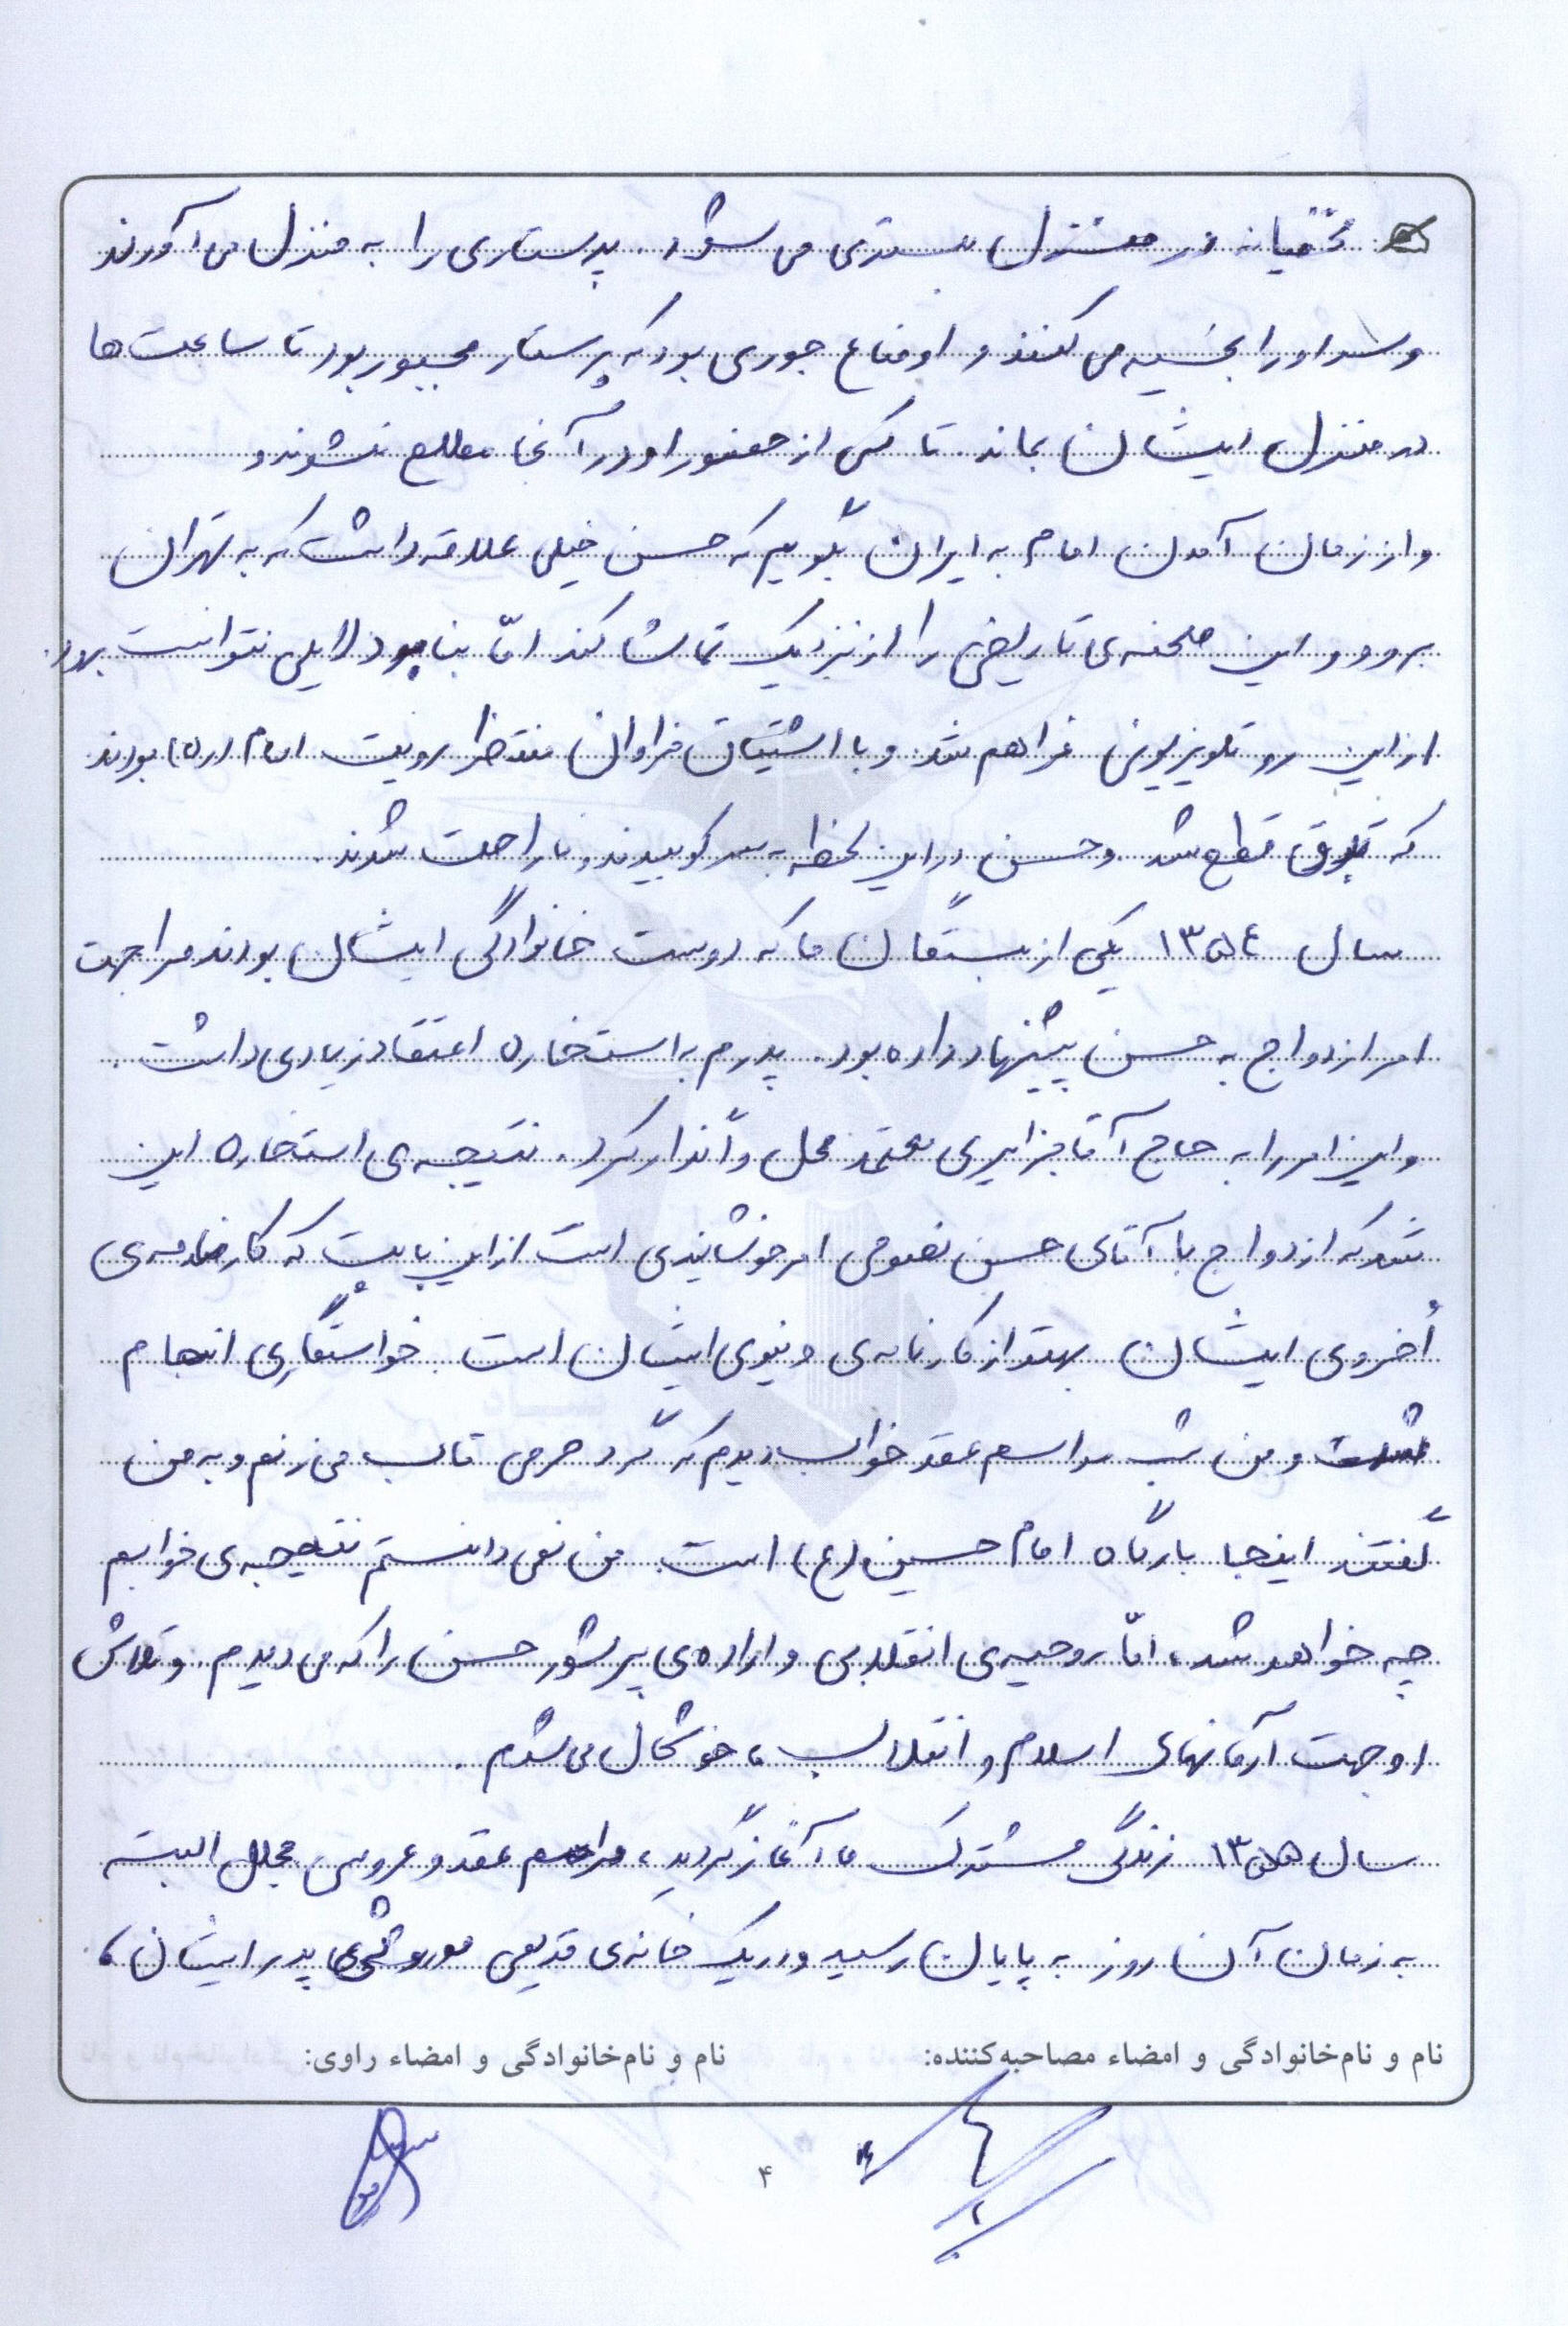 مخفیانه در منزل بستری می شود. پرستاری را به منزل می آورند
و سر او را بخیه می کنند و اوضاع جوری بود که پرستار مجبور بود تا ساعت ها
در منزل ایشان بماند. تا کسی از حضور او در آنجا مطلع نشوند و
و از زمان آمدن امام به ایران بگویم که حسن خیلی علاقه داشت که به تهران
برود و این صحنه ی تاریخی را از نزدیک تماشا کند امّا بنابر دلایلی نتوانست برود.
از این رو تلویزیونی فراهم شد و با اشتیاق فراوان منتظر رویت امام (ره) بودند
که برق قطع شد و حسن در این لحظه به سر کوبیدند و ناراحت شدند.
سال ۱۳۵۴ یکی از بستگان ما که دوست خانوادگی ایشان بودند مرا جهت
امر ازدواج به حسن پیشنهاد داده بود. پدرم به استخاره اعتقاد زیادی داشت.
و این امر را به حاج آقا جزایری معتمد محل واگذار کرد. نتیجه ی استخاره این
شد که ازدواج با آقای حسن نصوحی امر خوشایندی است از این بابت که کارنامه ی
اُخروی ایشان بهتر از کارنامه ی دنیوی ایشان است. خواستگاری انجام
گشت و من شب مراسم عقد خواب دیدم که گرد حرمی قالب می زنم و به من
گفتند اینجا بارگاه امام حسین (ع) است. من نمی دانستم نتیجه ی خوابم
چه خواهد شد، امّا روحیه ی انقلابی و اراده ی پرشور حسن را که می دیدم. و تلاش
او جهت آرمانهای اسلام و انقلاب، خوشحال می شدم.
سال ۱۳۵۵ زندگی مشترک ما آغاز گردید، مراسم عقد و عروسی مجلل البته
به زمان آن روز به پایان رسید و در یک خانه ی قدیمی موروثی پدر ایشان،
نام و نام‌خانوادگی و امضاء مصاحبه‌کننده: نام و نام‌خانوادگی و امضاء راوی:
۴